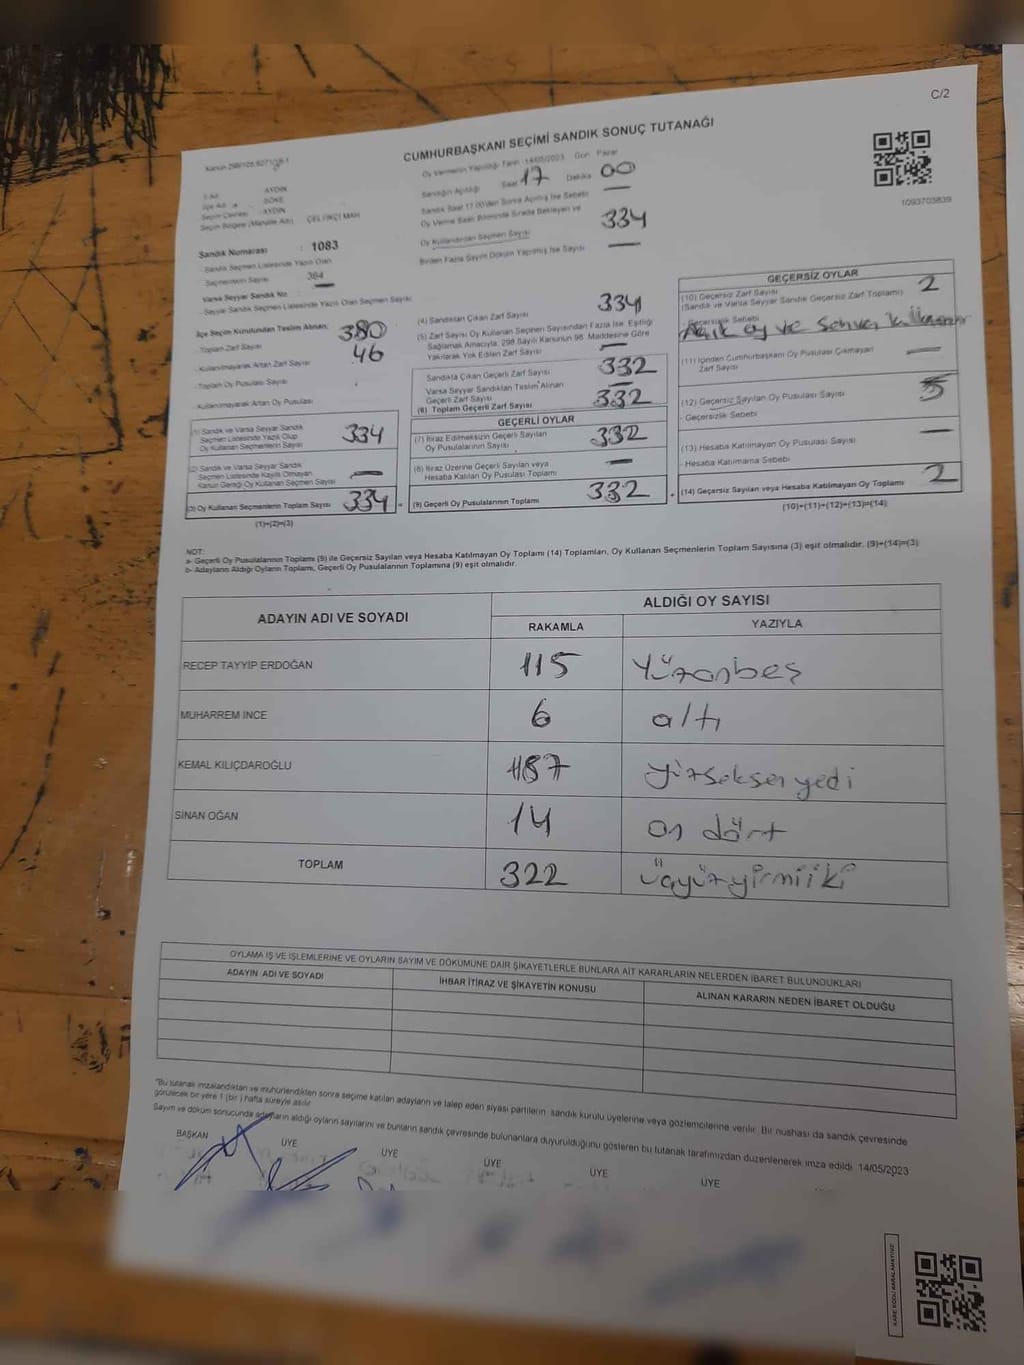 C/2
CUMHURBAŞKANI SEÇİMİ SANDIK SONUÇ TUTANAĞI
Oy Vermenin Yapıldığı Tarih :14/05/2023 Gün Pazar
Sandığın Açıldığı Saat 17 Dakika 00
Sandık Saat 17.00'den Sonra Açılmış İse Sebebi —
Oy Verme Saati Bitiminde Sırada Bekleyen ve
Oy Kullandırılan Seçmen Sayısı 334
Birden Fazla Sayım Döküm Yapılmış İse Sayısı —
1093703839
AYDIN
SÖKE
AYDIN
Seçim Bölgesi (Mahalle Adı) ÇELTİKÇİ MAH
Sandık Numarası : 1083
- Sandık Seçmen Listesinde Yazılı Olan
Seçmenlerin Sayısı 384
Varsa Seyyar Sandık No —
- Seyyar Sandık Seçmen Listesinde Yazılı Olan Seçmen Sayısı
İlçe Seçim Kurulundan Teslim Alınan;
- Toplam Zarf Sayısı 380
- Kullanılmayarak Artan Zarf Sayısı 46
- Toplam Oy Pusulası Sayısı
- Kullanılmayarak Artan Oy Pusulası
(1) Sandık ve Varsa Seyyar Sandık
Seçmen Listesinde Yazılı Olup
Oy Kullanan Seçmenlerin Sayısı 334
(2) Sandık ve Varsa Seyyar Sandık
Seçmen Listesinde Kayıtlı Olmayan
Kanun Gereği Oy Kullanan Seçmen Sayısı —
(3) Oy Kullanan Seçmenlerin Toplam Sayısı 334
(1)+(2)=(3)
(4) Sandıktan Çıkan Zarf Sayısı 334
(5) Zarf Sayısı Oy Kullanan Seçmen Sayısından Fazla İse, Eşitliği
Sağlamak Amacıyla, 298 Sayılı Kanunun 98. Maddesine Göre
Yakılarak Yok Edilen Zarf Sayısı —
Sandıkta Çıkan Geçerli Zarf Sayısı 332
Varsa Seyyar Sandıktan Teslim Alınan
Geçerli Zarf Sayısı —
(6) Toplam Geçerli Zarf Sayısı 332
GEÇERLİ OYLAR
(7) İtiraz Edilmeksizin Geçerli Sayılan
Oy Pusulalarının Sayısı 332
(8) İtiraz Üzerine Geçerli Sayılan veya
Hesaba Katılan Oy Pusulası Toplamı —
= (9) Geçerli Oy Pusulalarının Toplamı 332
GEÇERSİZ OYLAR
(10) Geçersiz Zarf Sayısı 2
(Sandık ve Varsa Seyyar Sandık Geçersiz Zarf Toplamı)
- Geçersizlik Sebebi
Açık oy ve
(11) İçinden Cumhurbaşkanı Oy Pusulası Çıkmayan
Zarf Sayısı —
(12) Geçersiz Sayılan Oy Pusulası Sayısı
- Geçersizlik Sebebi
(13) Hesaba Katılmayan Oy Pusulası Sayısı —
- Hesaba Katılmama Sebebi
+ (14) Geçersiz Sayılan veya Hesaba Katılmayan Oy Toplamı 2
(10)+(11)+(12)+(13)=(14)
NOT:
a- Geçerli Oy Pusulalarının Toplamı (9) ile Geçersiz Sayılan veya Hesaba Katılmayan Oy Toplamı (14) Toplamları, Oy Kullanan Seçmenlerin Toplam Sayısına (3) eşit olmalıdır. (9)+(14)=(3)
b- Adayların Aldığı Oyların Toplamı, Geçerli Oy Pusulalarının Toplamına (9) eşit olmalıdır.
ADAYIN ADI VE SOYADI
ALDIĞI OY SAYISI
RAKAMLA YAZIYLA
RECEP TAYYİP ERDOĞAN 115 Yüzonbeş
MUHARREM İNCE 6 altı
KEMAL KILIÇDAROĞLU 187 yüzseksenyedi
SİNAN OĞAN 14 on dört
TOPLAM 322 üçyüzyirmiiki
OYLAMA İŞ VE İŞLEMLERİNE VE OYLARIN SAYIM VE DÖKÜMÜNE DAİR ŞİKAYETLERLE BUNLARA AİT KARARLARIN NELERDEN İBARET BULUNDUKLARI
ADAYIN ADI VE SOYADI İHBAR İTİRAZ VE ŞİKAYETİN KONUSU ALINAN KARARIN NEDEN İBARET OLDUĞU
"Bu tutanak imzalandıktan ve mühürlendikten sonra seçime katılan adayların ve talep eden siyasi partilerin sandık kurulu üyelerine veya gözlemcilerine verilir. Bir nushası da sandık çevresinde
görülecek bir yere 1 (bir) hafta süreyle asılır.
Sayım ve döküm sonucunda adayların aldığı oyların sayılarını ve bunların sandık çevresinde bulunanlara duyurulduğunu gösteren bu tutanak tarafımızdan düzenlenerek imza edildi. 14/05/2023
BAŞKAN ÜYE ÜYE ÜYE ÜYE ÜYE
KARE KODU KARALAMAYINIZ